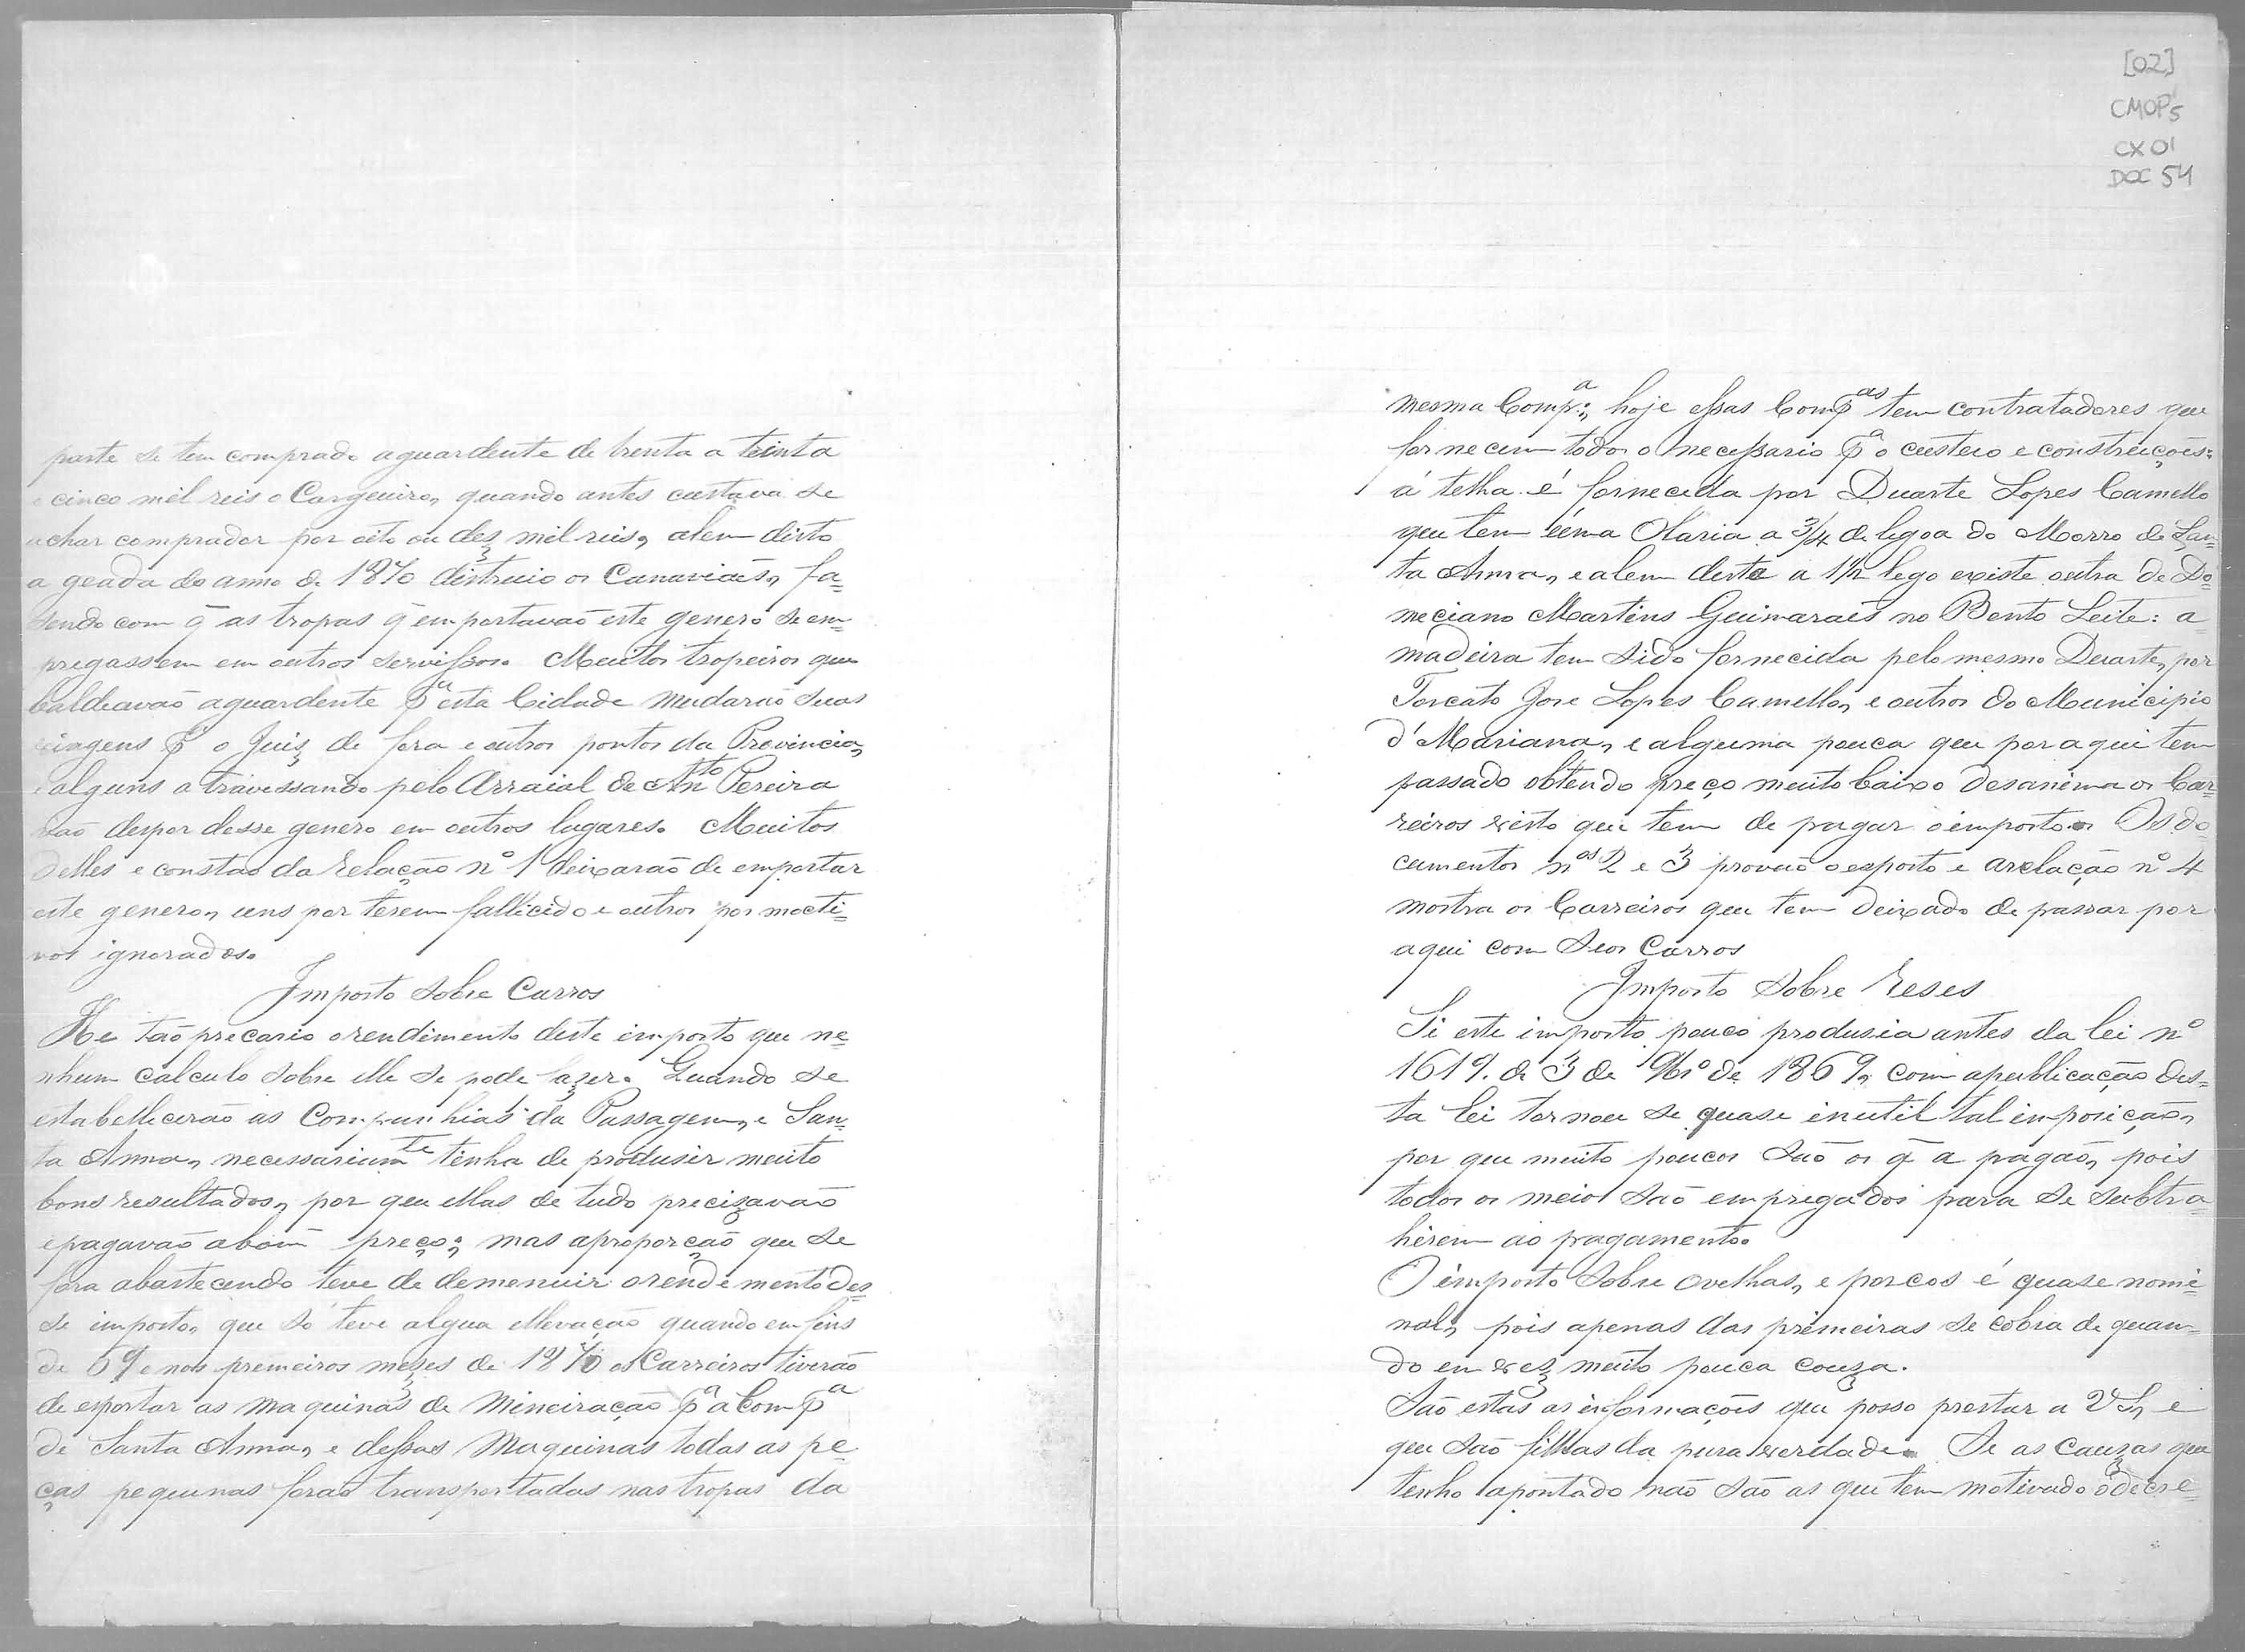 parte se tem comprado aguardente de trenta a trinta
e cinco mil reis o Cargueiro, quando antes custava se
achar comprador por oito ou dez mil reis, alem disto
a geada do anno de 1870 distruio os Canaviaes, fa=
sendo com q̃ as tropas q̃ emportavaõ este genero se em=
pregassem em outros servissos. Muitos tropeiros que
baldeavaõ aguardente pª esta Cidade mudaraõ suas
viagens pª o Juiz de fora e outros pontos da Provincia,
e alguns atravessando pelo Arraial de Anto Pereira
vaõ despor desse genero em outros lugares. Muitos
delles e constaõ da relaçaõ nº 1 deixaraõ de emportar
este genero, uns por terem fallicido e outros por moti=
vos ignorados.
Imposto sobre Carros
He taõ precario o rendimento deste imposto que ne=
nhum calculo sobre elle se pode fazer. Quando se
estabellceraõ as Companhias da Passagem, e San=
ta Anna, necessariamte tinha de produsir muito
bons resultados, por que ellas de tudo precizavaõ
e pagavaõ a bom preço; mas a proporçaõ que se
fora abastecendo teve de demenuir o rendemento des=
se imposto, que só teve algua ellevaçaõ quando em fins
de 69 e nos premeiros mezes de 1870 os Carreiros tiveraõ
de esportar as maquinas de Mineiraçaõ pª a Compª
de Santa Anna, e dessas Maquinas todas as pe=
ças pequenas foraõ transportadas nas tropas da
[02]
CMOP5
CX 01
DOC 54
mesma Compª:, hoje essas Compas tem contratadores que
fornecem todo o necessario pª o custeio e construiçoẽs:
á telha é fornecida por Duarte Lopes Camello
que tem uma Olaria a 3/4 de legoa do Morro de San=
ta Anna, e alem desta a 1 1/2 lego existe outra de Do=
meciano Martins Guimaraẽs no Bento Leite: a
madeira tem sido fornecida pelo mesmo Duarte, por
Torcato Jose Lopes Camello, e outros do Municipio
d'Mariana, e alguma pouca que por aqui tem
passado obtendo preço muito baixo desanima os Car=
reiros visto que tem de pagar o imposto. Os do=
cumentos nos 2 e 3 provaõ o esposto e a relaçaõ nº 4
mostra os Carreiros que tem deixado de passar por
aqui com seos Carros
Imposto sobre reses
Si este imposto pouco produsia antes da lei nº
1619. de 3 de 9bro de 1869, com a publicaçaõ des=
ta lei tornou se quase inutil tal imposiçaõ,
por que muito poucos saõ os q̃ a pagaõ, pois
todos os meios saõ empregados para se subtra=
hirem ao pagamento.
O imposto sobre ovelhas, e porcos é quase nomi=
nal, pois apenas das primeiras se cobra de quan=
do em vez muito pouca couza.
Saõ estas as informaçoẽs que posso prestar a VS, e
que saõ filhas da pura verdade. Se as cauzas que
tenho apontado naõ saõ as que tem motivado o decre=